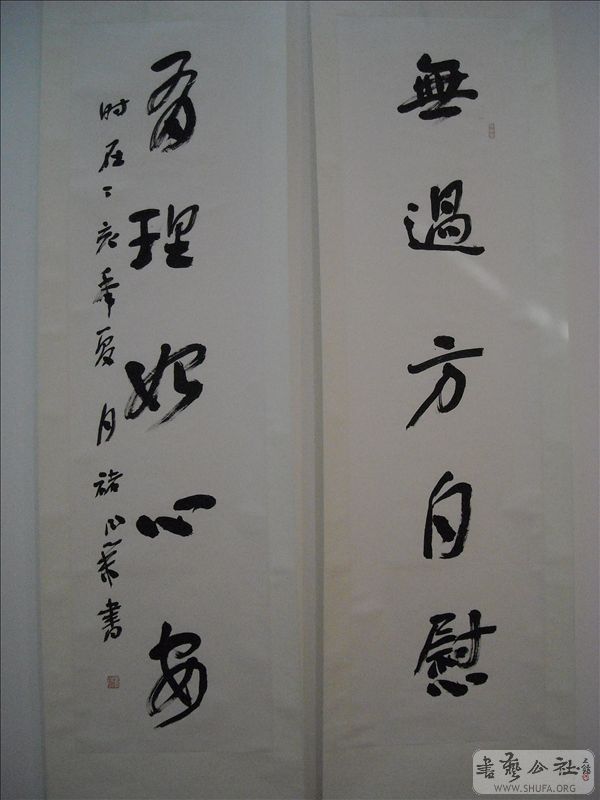 無過方自慰
有理始心安
时在丁亥年夏月褚
書
書藝公社
WWW.SHUFA.ORG